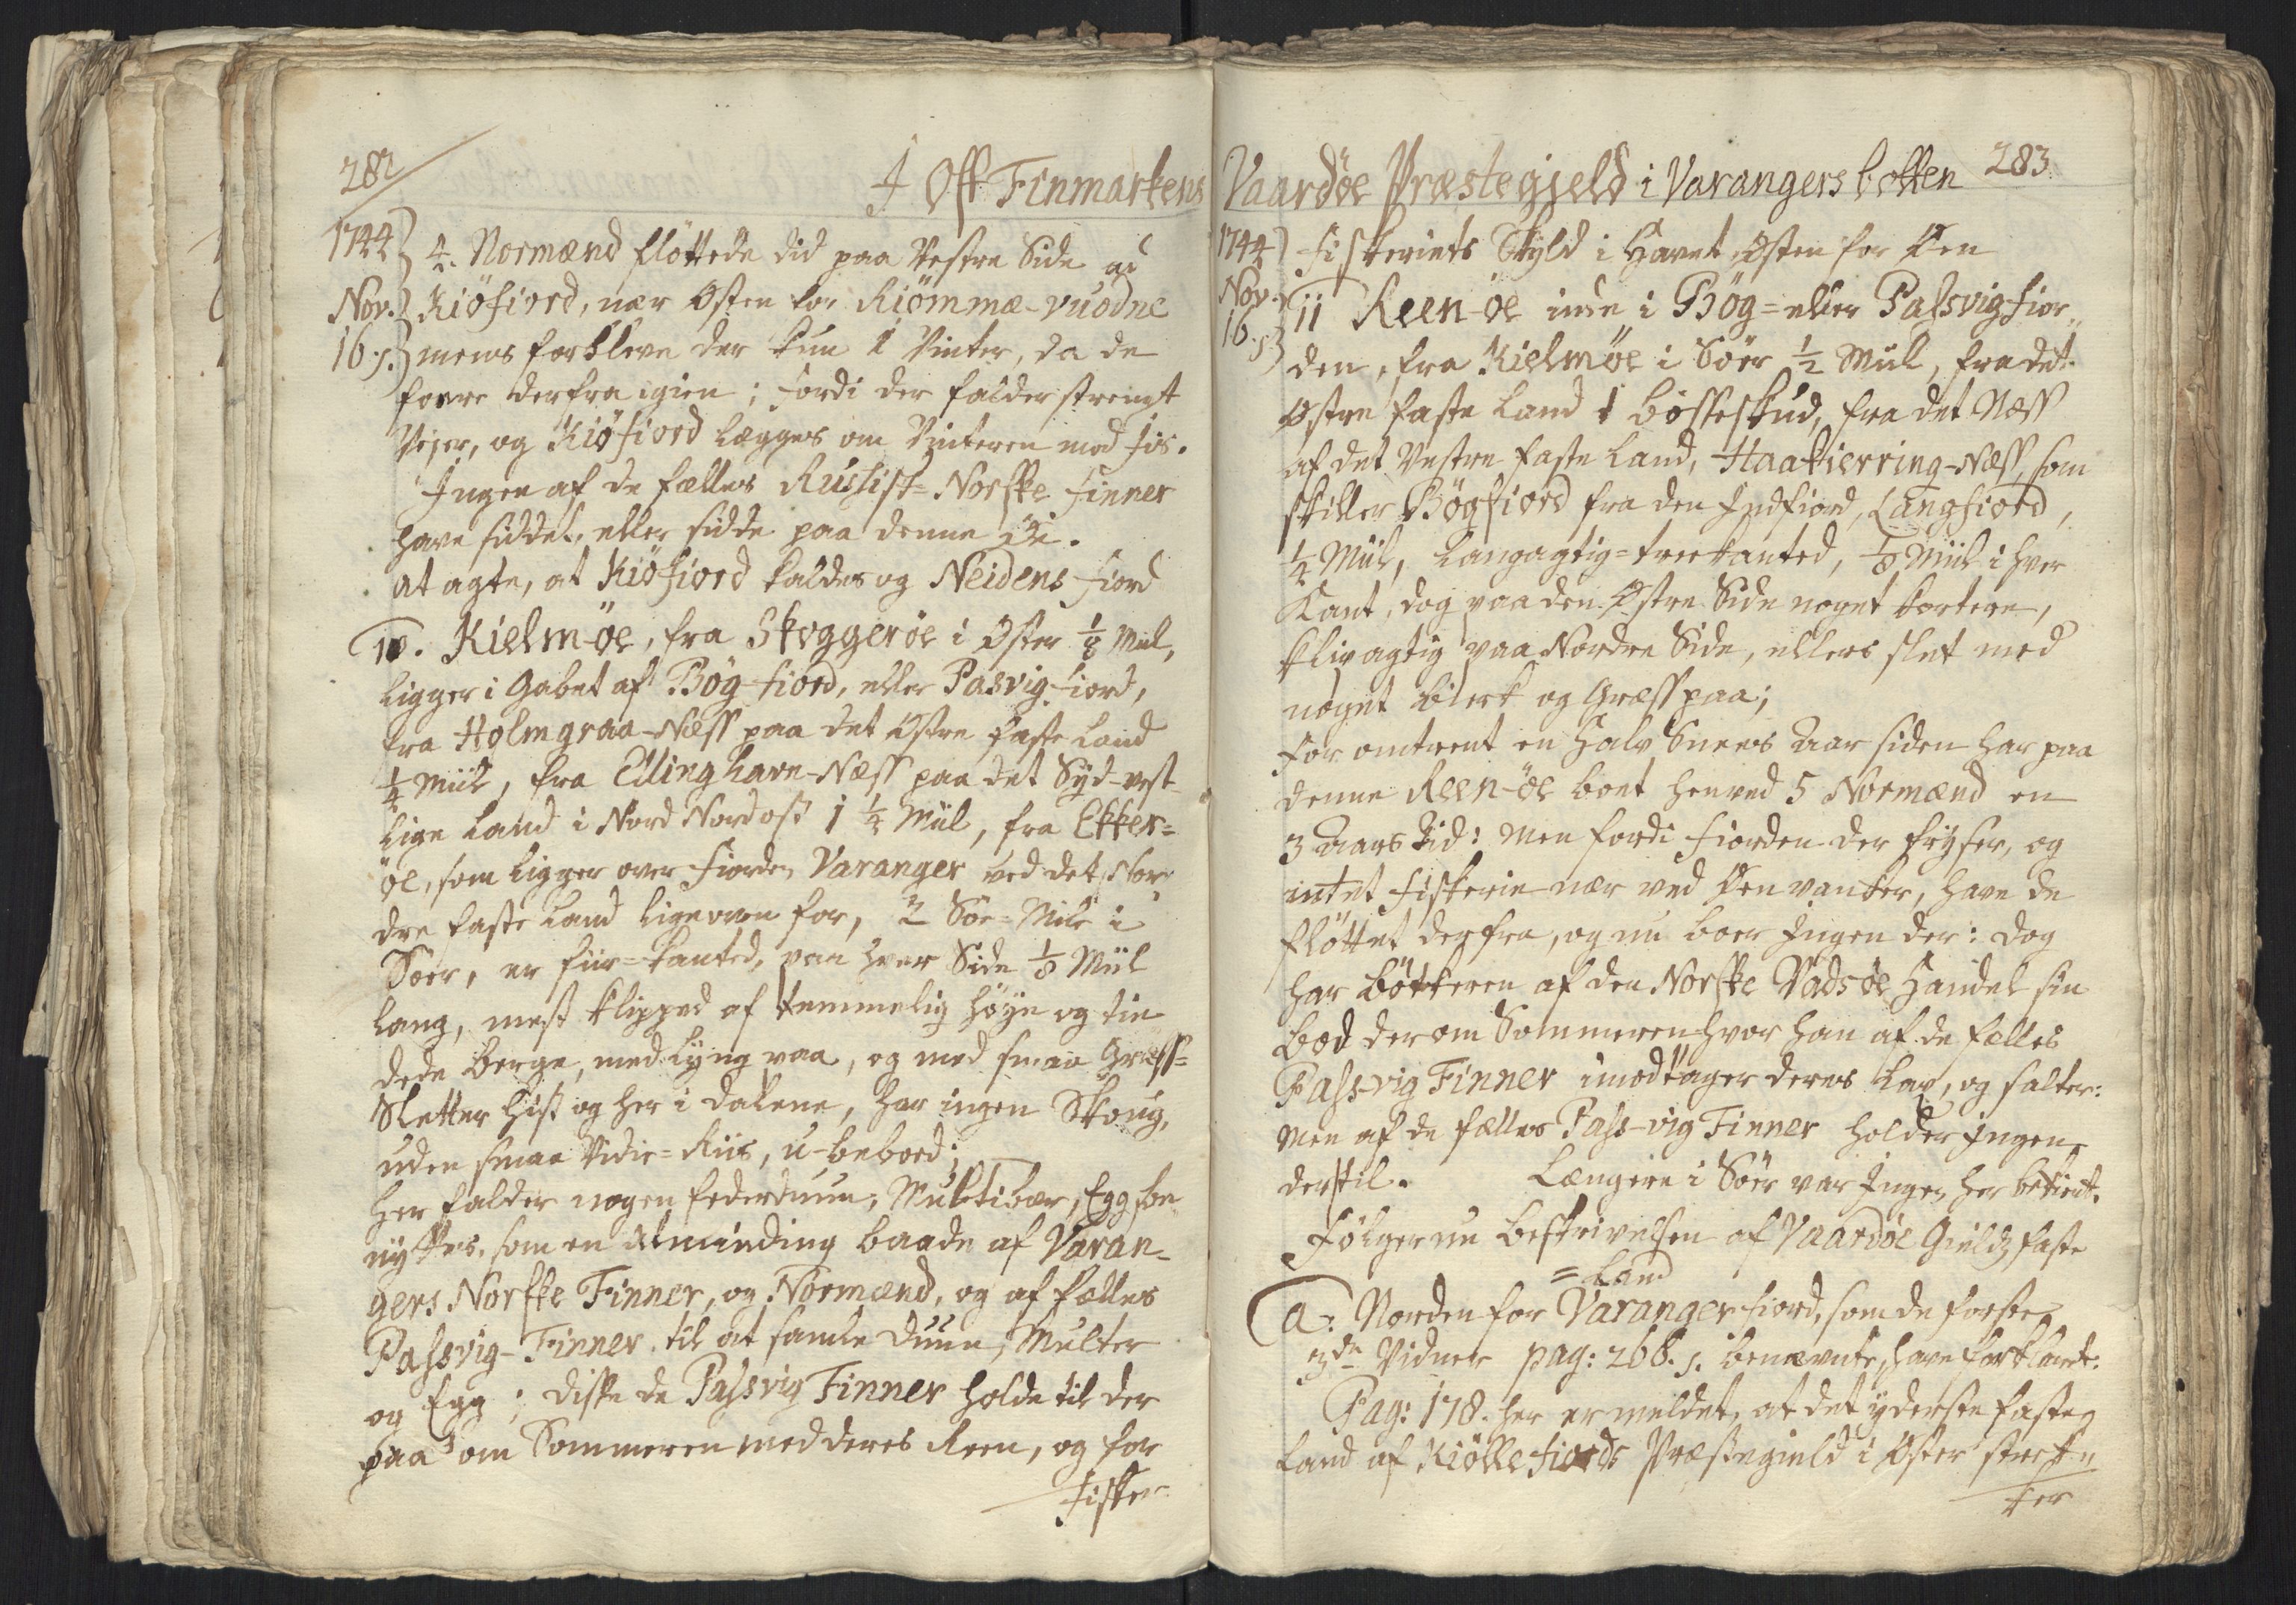 282
I Ost Finmarkens
1744
4. Normænd flöttede did paa Vestre Side ad
Nov.
Kiöfiord, nær Østen for Kiömmæ-vuodne
16. s.
mens forbleve der kun 1 Vinter, da de
foore derfra igien; fordi der falder strengt
Vejer, og Kiöfiord lægges om Vinteren med Jis.
Ingen af de fælles Russisk-Norske Finner
have siddet, eller sidde paa denne Öe.
at agte, at Kiöfiord kaldes og Neidens-Fiord
10. Kielm-öe, fra Skoggeröe i Öster 1/8 Miil,
ligger i Gabet af Bög-fiord, eller Pasvig-Fiord,
fra Holmgraa-Næss paa det Östre faste Land
1/4 Miil, fra Edinghavn-Næss paa det Syd-vest-
lige Land i Nord Nordost 1 1/4 Miil, fra Ekker-
öe, som ligger over Fiorden Varanger ved det Nor-
dre faste Land lige over for, 3 Söe-Mile i
Soer, er fiir-kanted, paa hver Side 1/8 Miil
lang, mest klipped af temmelig höye og tin-
dede Berge, med Lyng paa, og med smaa Græss-
Sletter hist og her i Dalene, har ingen Skoug,
uden smaa Vidie-Riis, u-beboed;
her falder nogen Federduun, Multibær, Egg, be-
nyttes som en Alminding baade af Varan-
gers Norske Finner, og Normænd, og af fælles
Passvig-Finner til at samle Duun, Multer
og Egg; disse de Passvig Finner holde til der
paa om Sommeren med deres Reen, og for
Fiske-
Vaardöe Præstegjeld i Varangers botten
283.
1744
Fiskeriets Skyld i Havet Østen for Øen
Nov.
16. s.
11 Reen-öe inde i Bög- eller Passvig Fior-
den, fra Kielmöe i Söer 1/2 Miil, fra det
Östre faste Land 1 bösseskud, fra det Næss
af det Vestre faste Land, Haakierring-Næss, som
skiller Bögfiord fra den Indfiord, Langfiord,
1/4 Miil, langagtig-treekanted, 1/8 Miil i hver
Kant, dog paa den Østre Side noget kortere,
klipagtig paa Nordre Side, ellers slet med
noget Birk og Græss paa;
For omtrent en halv Snees Aar siden har paa
denne Reen-öe boet henved 5 Normænd en
3 Aars Tid: men fordi Fiorden der fryser, og
intet Fiskerie nær ved Øen vanker, have de
flöttet derfra, og nu boer Ingen der: dog
har Bötkeren af den Norske Vadsöe Handel sin
Bod der om Sommeren hvor han af de fælles
Pass-vig Finner imodtager deres Lax, og salter:
men af de fælles Pass-vig Finner holder Ingen
der til. Længere i Söer var Ingen her bekient.
Fölger nu Beskrivelsen af Vaardöe Gields faste
=Land
a: Norden for Varanger Fiord, som de forste
3de Vidner pag: 268. s. benævnte, have forklaret.
Pag: 178. her er meldet, at det yderste faste
Land af Kiöllefiords Præstegield i Öster strek-
ker